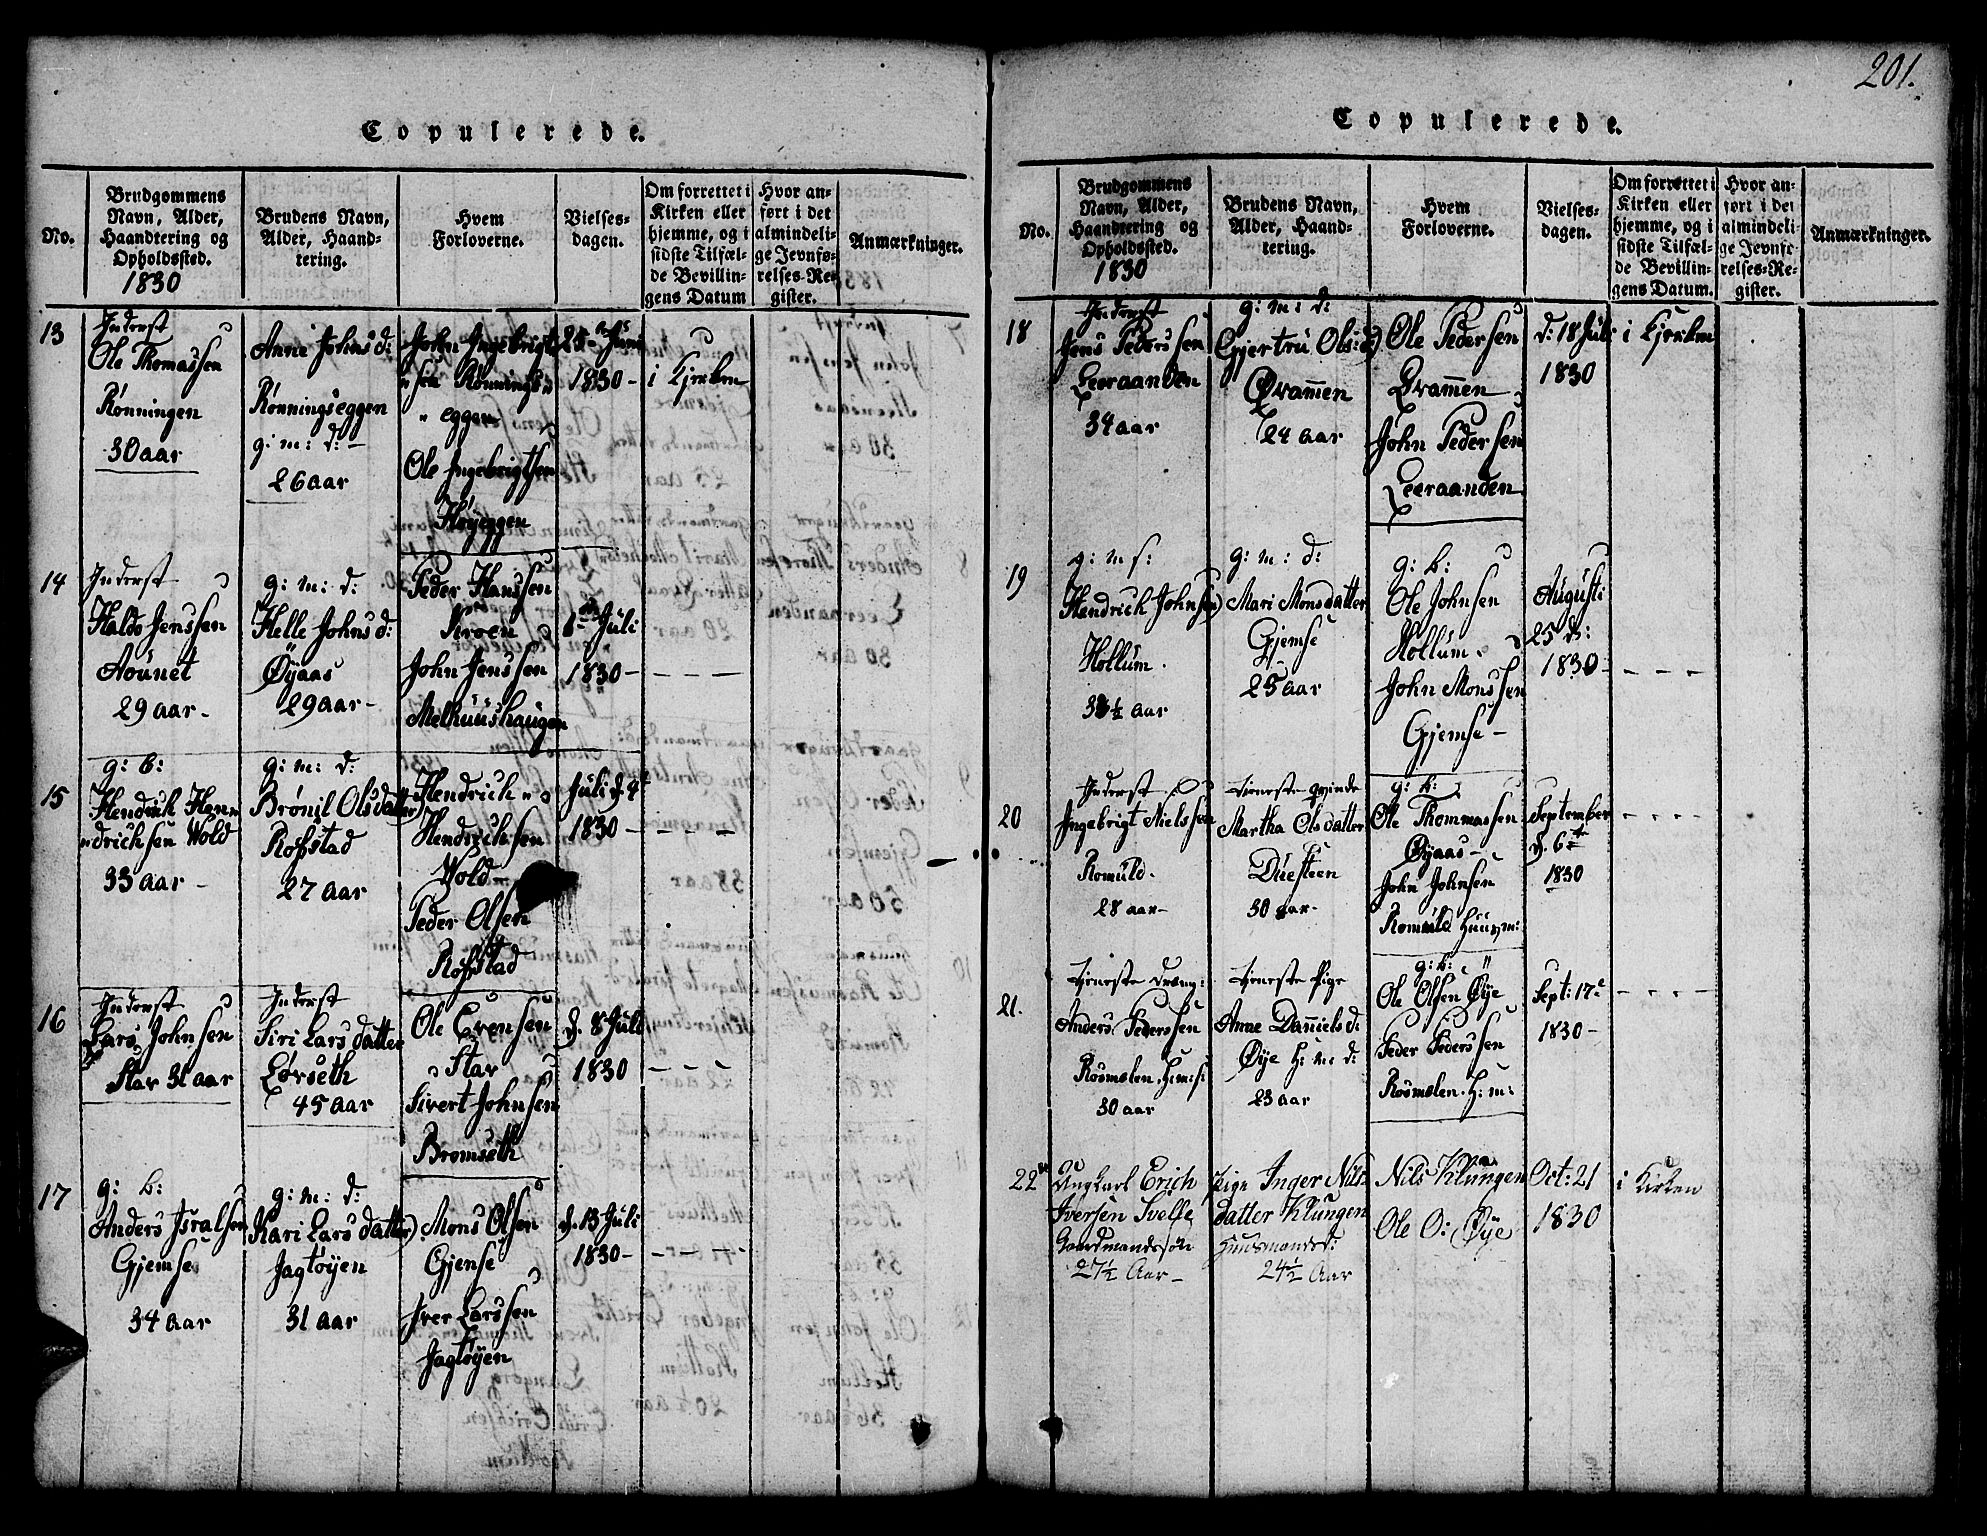 Copulerede.
No.
Brudgommens
Navn, Alder,
Haandtering og
Opholdssted.
1830
Brudens Navn,
Alder, Haand-
tering.
Hvem
Forloverne.
Vielses-
dagen.
Om forrettet i
Kirken eller
hjemme, og i
sidste Tilfæl-
de Bevillin-
gens Datum
Hvor an-
ført i det
almindeli-
ge Jevnfø-
relses-Re-
gister.
Anmærkninger.
13
Inderst
Ole Thomassen
Rønningen
30 aar
Anne Johns d:
Rønningseggen
g: m: d: -
26 aar
John Ingebrigt
sen Rønnings
" eggen
Ole Ingebrigtsen
Høyeggen
Juni
1830 -
i Kjerken
14
Inderst
Haldo Jenssen
Aounet
29 aar -
g: m: d:
Helle Johns d:
Øyaas
29 aar -
Peder Hanssen
Kroen
John Jenssen
Melhuushaugen
Juli
1830 -
- - - -
15
g: b:
Hendrich Hen=
"drichsen Wold
33 aar -
g: m: d:
Brønil Olsdatter
Rofstad
27 aar
Hendrich
Hendrichsen
Wold -
Peder Olsen
Rofstad
Juli d. 4
1830 -
- - - -
16
Inderst
Lars Johnsen
Flar 31 aar
Inderst
Siri Lars datter
Lørseth
45 aar
Ole Evensen
Flar
Sivert Johnsen
Bromseth
d. 8 Juli
1830
- - -
17
g: b:
Anders Isralsen
Gjemse
34 aar
g: m: d:
Kari Lars datter
Jagtøyen
31 aar
Mons Olsen
Gjemse
Iver Larssen
Jagtøyen
d. 13 Juli
1830 -
- - - -
201.
Copulerede.
No.
Brudgommens
Navn, Alder,
Haandtering og
Opholdssted.
1830
Brudens Navn,
Alder, Haand-
tering.
Hvem
Forloverne.
Vielses-
dagen.
Om forrettet i
Kirken eller
hjemme, og i
sidste Tilfæl-
de Bevillin-
gens Datum.
Hvor an-
ført i det
almindeli-
ge Jevnfø-
relses-Re-
gister.
Anmærkninger.
18
Inderst
Jens Pederssen
Leeraanden
34 aar
g: m: d:
Gjertru Ols: d
Øramen
24 aar
Ole Pedersen
Øramen
John Pedersen
Leeraanden
d: 18 Juli
1830
i Kjerken
19
g: m s:
Hendrich Johnsen
Hollum.
aar
g: m: d:
Mari Monsdatter
Gjemse
25 aar
g: b:
Ole Johnsen
Hollum.
John Monssen
Gjemse -
Augusti
25 d:
1830 -
- - - -
20
Inderst
Ingebrigt Nielssen
Romuld.
28 aar -
tieneste qvinde
Martha Olsdatter
Duesteen
30 aar -
g: b:
Ole Thommassen
Øyaas -
John Johnsen
Romuld Huusm:
September
d. 6
1830
- - - -
21.
tjeneste dreng:
Anders Pederssen
Rosmolen. H: m: s:
30 aar
tjeneste Pige
Anne Daniels d:
Øye H: m: d:
23 aar
g: b: "
Ole Olsen Øye
Peder Pederssen
Rosmolen. H: m:
Sept: 17
1830 -
- - - -
22
Ungkarl Erich
Iversen Svelle
Gaardmandssøn
27½ Aar -
Pige Inger Nils
datter Klungen
Huusmandsd:
24½ Aar
Nils Klungen
Ole O: Øye
Oct: 21
1830
i Kirken